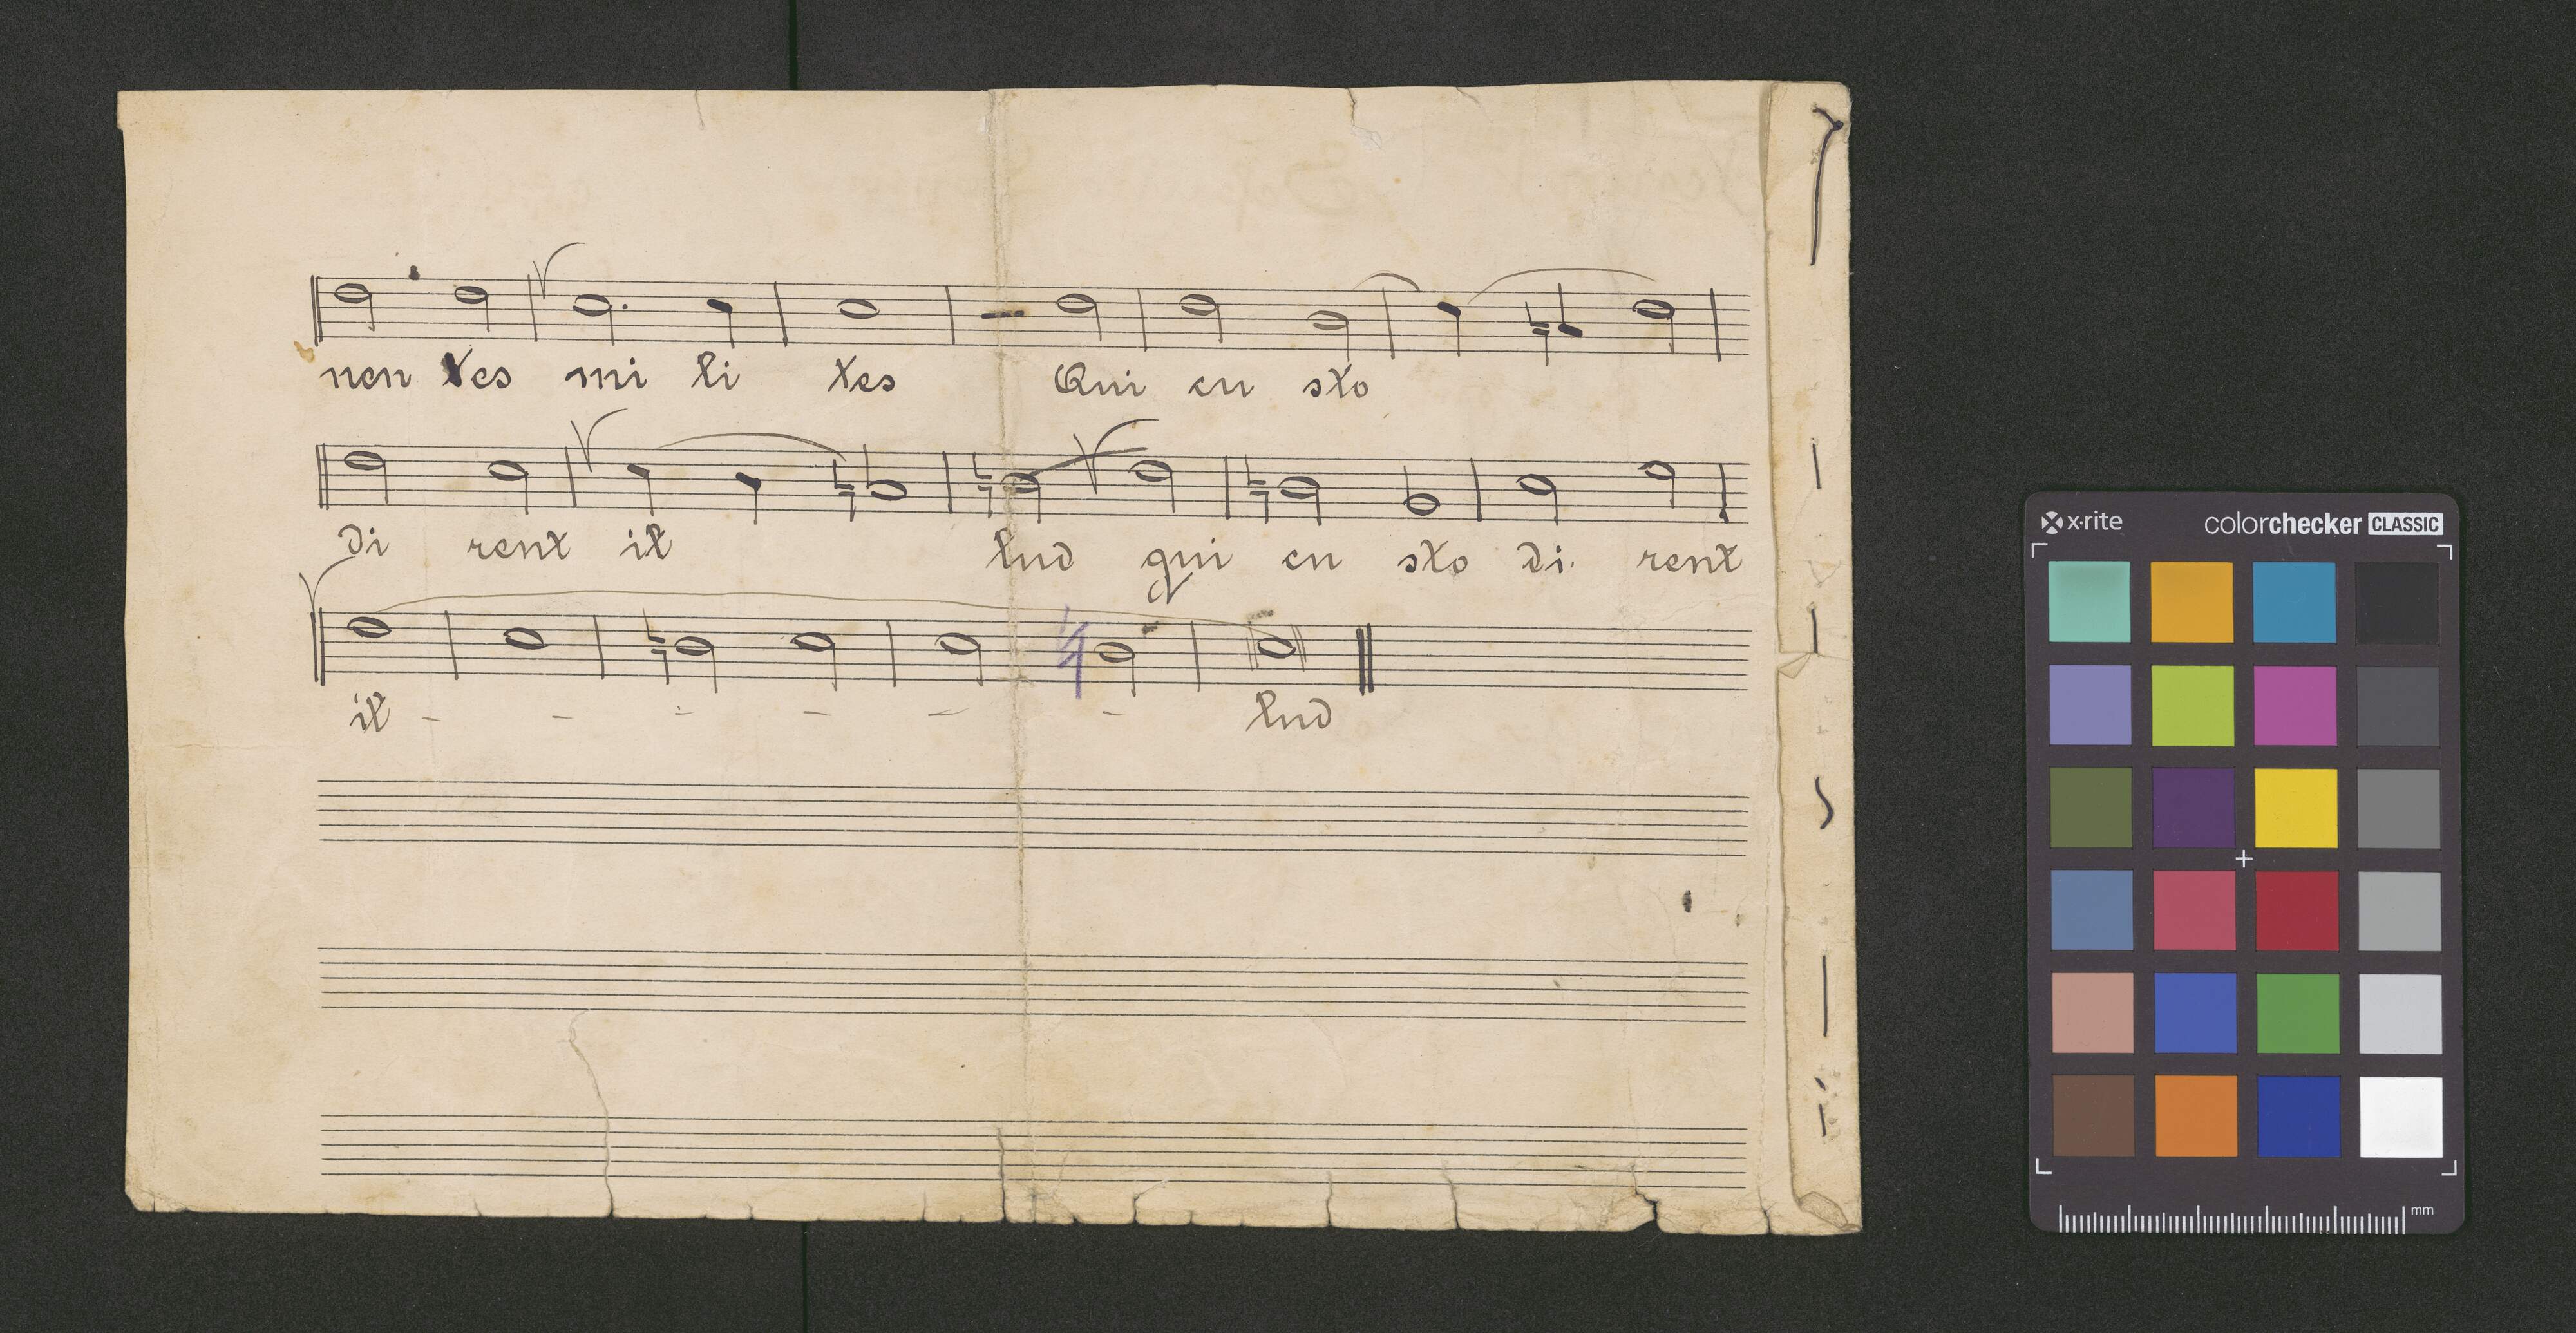 nen tes mi li tes Qui cu sto
di rent il lud qui cu sto di rent
il - - - - - - lud
x·rite colorchecker CLASSIC
mm